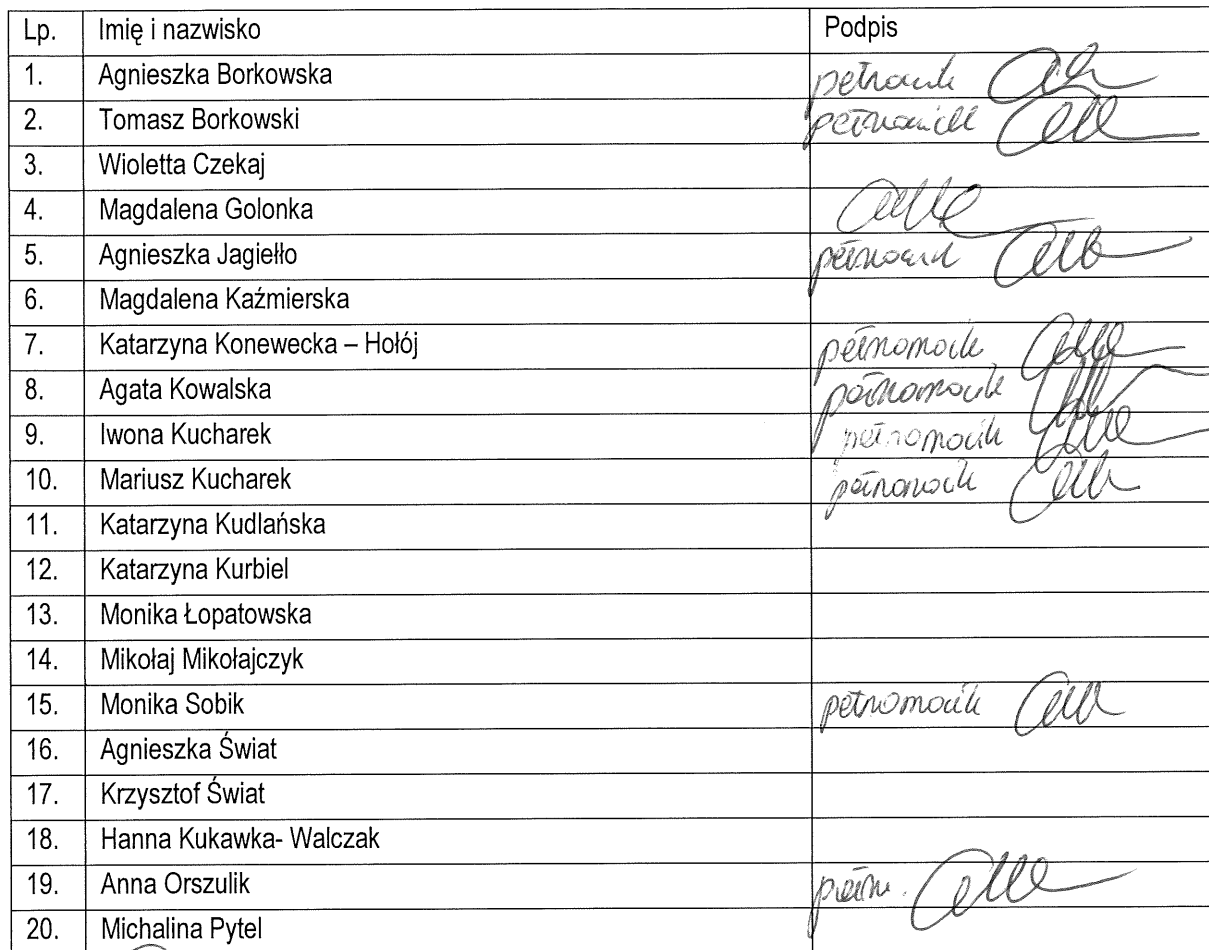 Lp. Imię i nazwisko Podpis
1. Agnieszka Borkowska
2. Tomasz Borkowski
3. Wioletta Czekaj
4. Magdalena Golonka
5. Agnieszka Jagiełło
6. Magdalena Kaźmierska
7. Katarzyna Konewecka – Hołój pełnomocnik
8. Agata Kowalska pełnomocnik
9. Iwona Kucharek pełnomocnik
10. Mariusz Kucharek pełnomocnik
11. Katarzyna Kudlańska
12. Katarzyna Kurbiel
13. Monika Łopatowska
14. Mikołaj Mikołajczyk
15. Monika Sobik pełnomocnik
16. Agnieszka Świat
17. Krzysztof Świat
18. Hanna Kukawka- Walczak
19. Anna Orszulik pełn.
20. Michalina Pytel